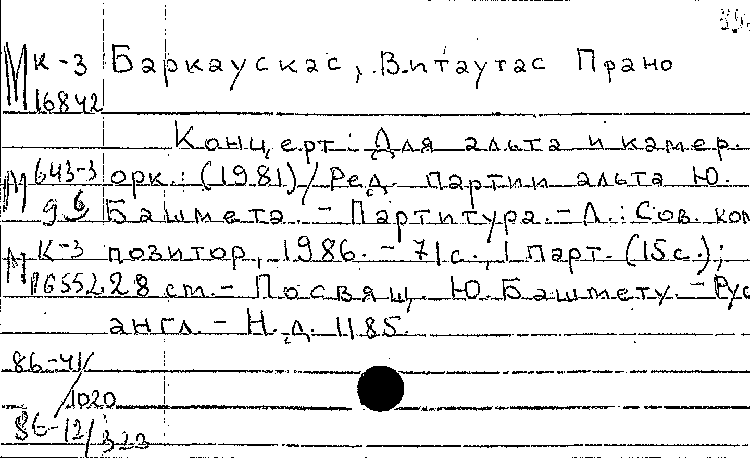 М к-3 Баркаускас, Витаутас Прано
16842
Концерт: Для альта и камер.
М 643-3 орк.: (1981)/Ред. партии альта Ю.
96 Башмета. - Партитура. - Л.: Сов. ком
М к-3 позитор, 1986. - 71 с., 1 парт. (15 с.);
16552 28 см. - Посвящ. Ю. Башмету. - Рус
англ. - Н.д. 1185.
86-41/
1020
86-12/323